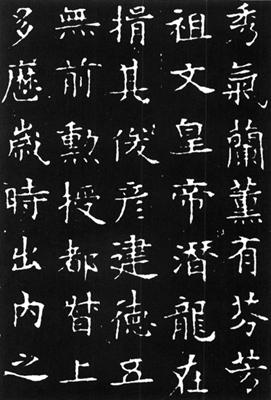 秀氣蘭薰有芬芳
祖文皇帝潛龍在
揖其俊彥建德五
無前勳授都督上
多歷歲時出內之